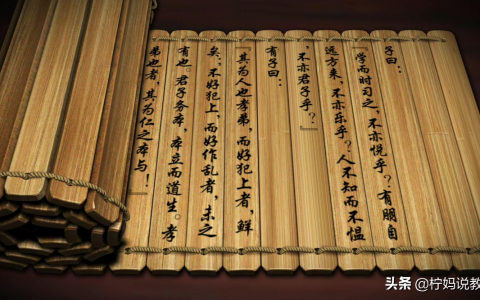 子曰：
『学而时习之，不亦悦乎？有朋自
远方来，不亦乐乎？人不知而不愠
，不亦君子乎？』
有子曰：
『其为人也孝弟，而好犯上者，鲜
矣。不好犯上，而好作乱者，未之
有也。君子务本，本立而道生。孝
弟也者，其为仁之本与！
头条 @柠妈说教